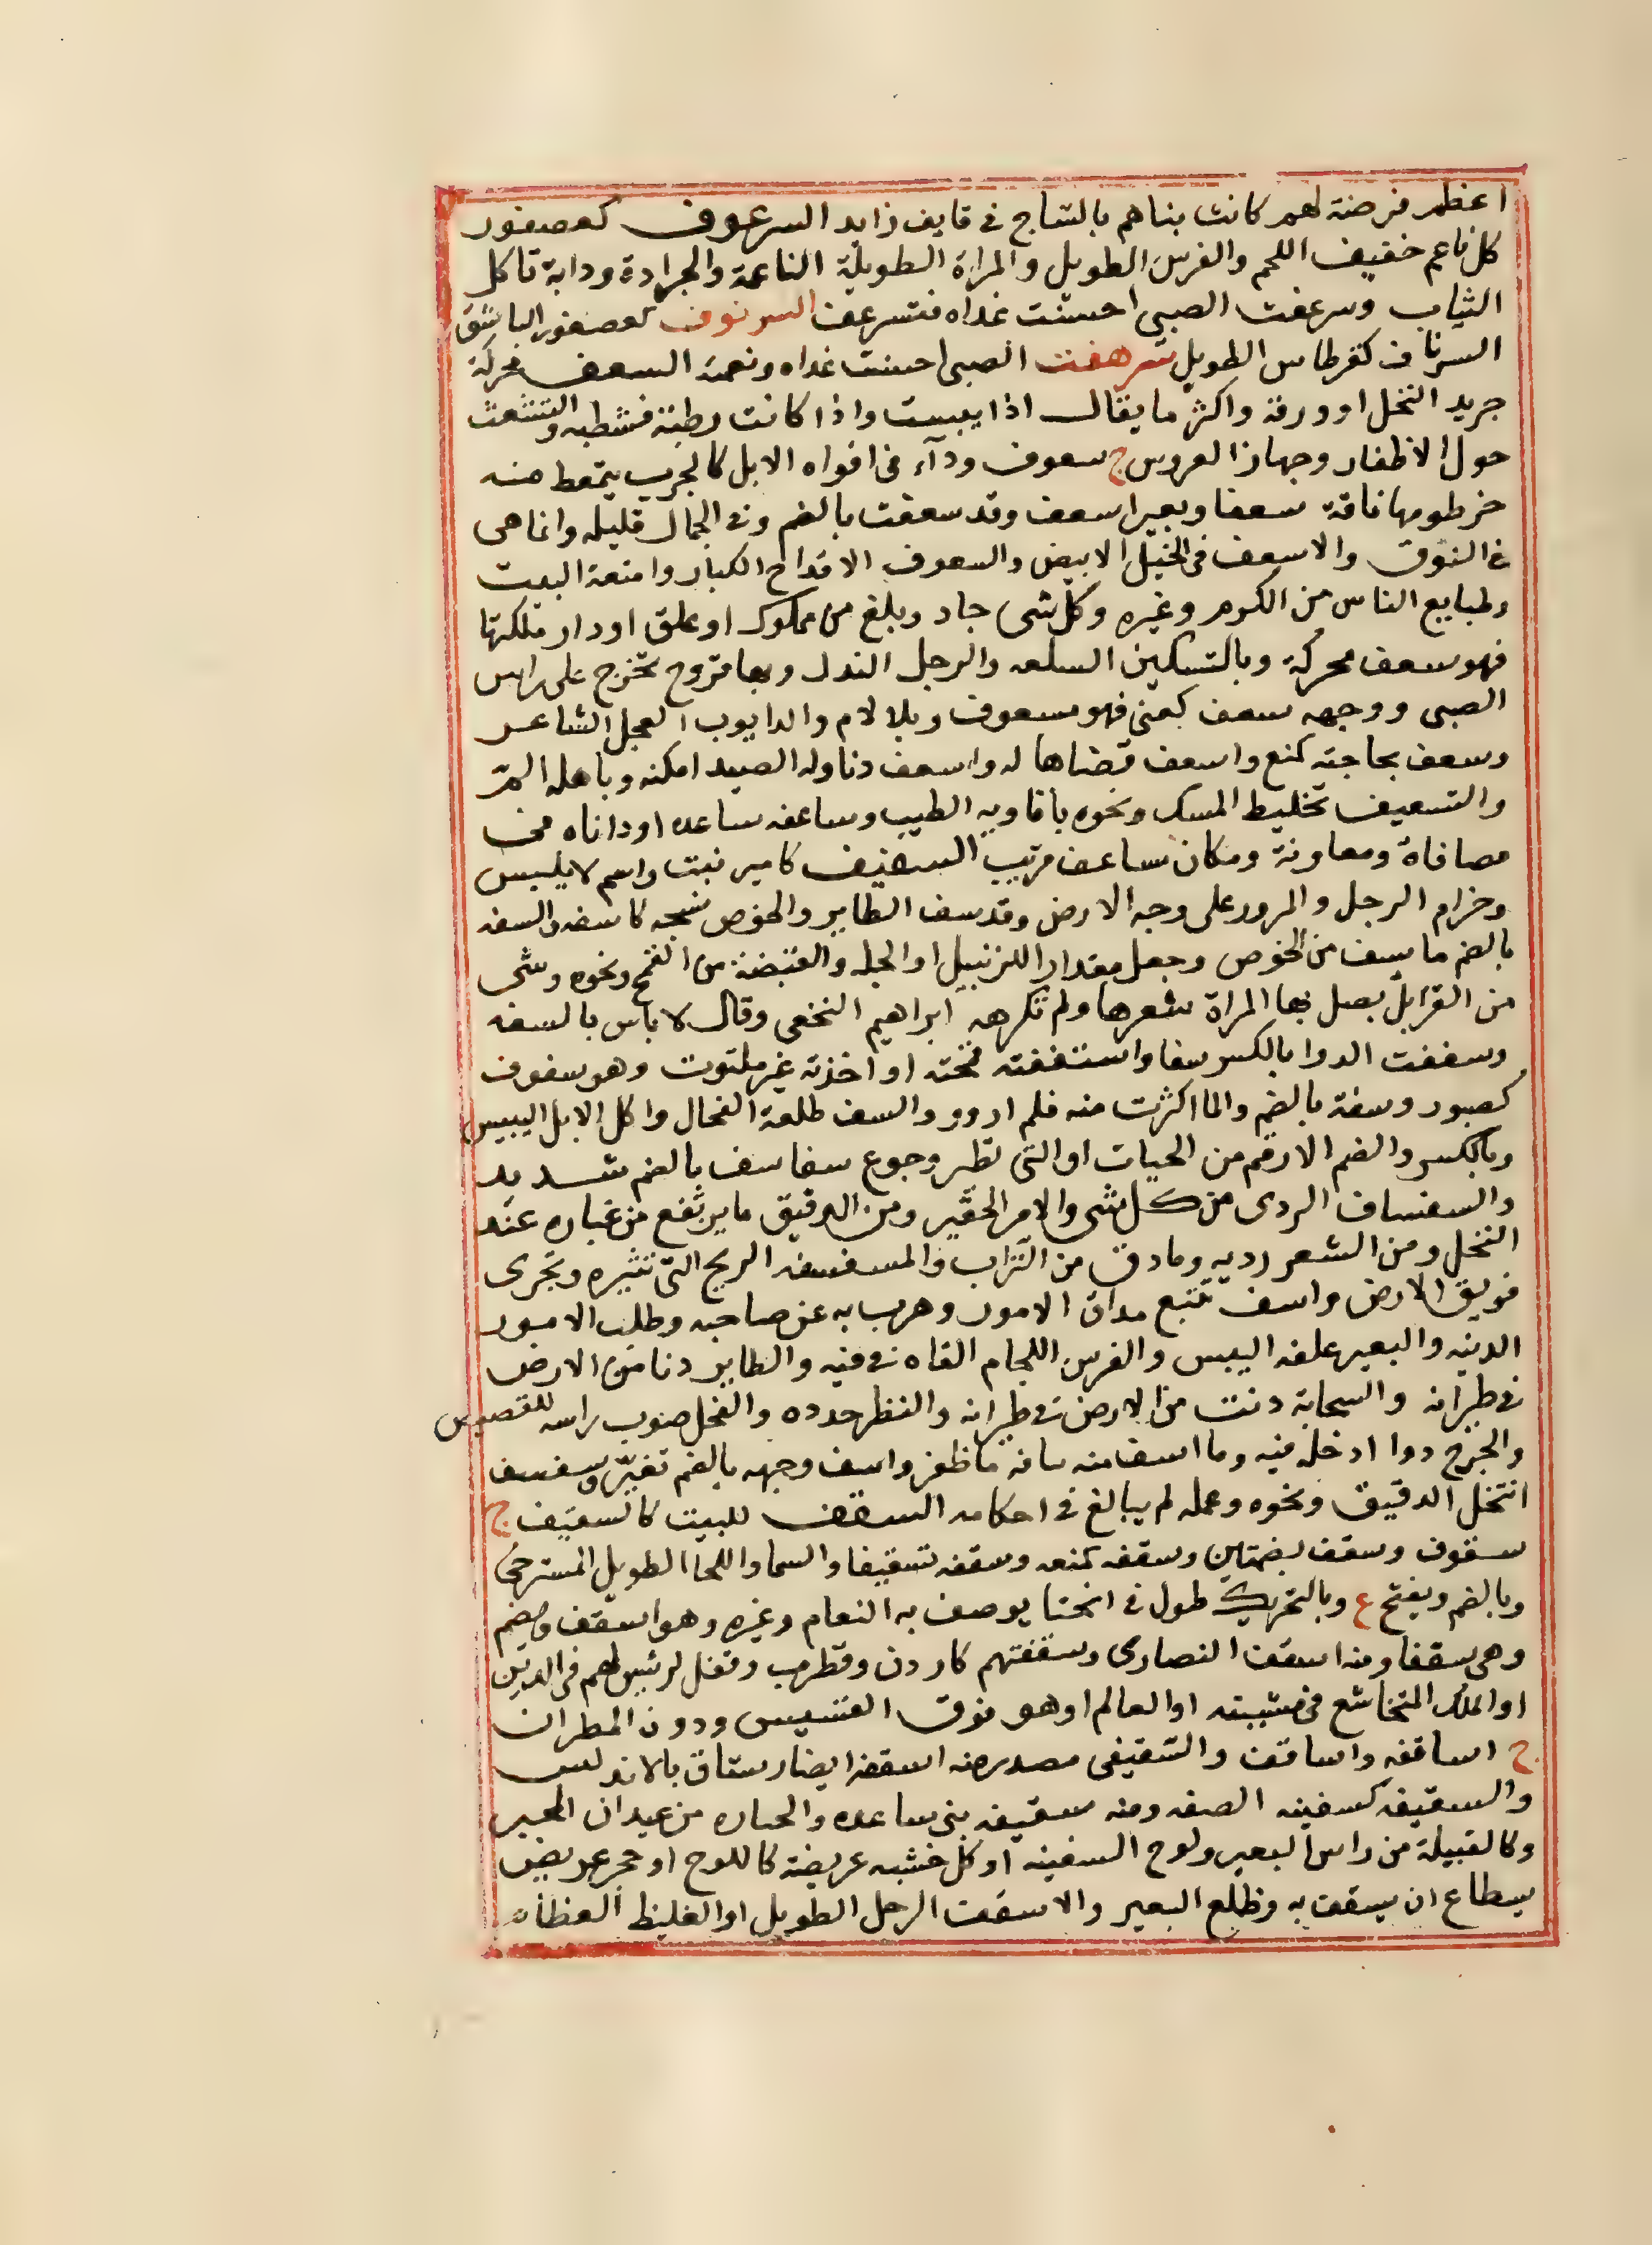 اعظم فرضة لهم كانت بناهم بالساج فى قايف زايد السرعوف كعصفور
كل ناعم خفيف اللحم والفرس الطويل والمراة الطويلة الناعمة والجرادة ودابة تاكل
الثياب وسرعفت الصبى احسنت غداه فتسرعف السرنوف كعصفور الباشق
السرناف كقرطاس الطويل سرهفت الصبى احسنت غداه ونعمته السعف محركة
جريد النخل او ورقة واكثر ما يقال اذا يبست واذا كانت رطبة فشطبه والتشعث
حول الاظفار وجهاز العروس ج سعوف ودآء فى افواه الابل كالجرب يتمعط منه
خرطومها ناقة سعفا وبعير اسعف وقد سعفت بالضم وفى الجمال قليله وانما هى
فى النوق والاسعف فى الخيل الابيض والسعوف الاقداح الكبار وامتعة البيت
وطبايع الناس من الكرم وغيره وكل شى جاد وبلغ من مملوك او علق او دار ملكتها
فهو سعف محركة وبالتسكين السلعه والرجل الندل وبها قروح تخرج على راس
الصبى ووجهه سعف كعنى فهو مسعوف وبلا لام والدايوب العجل الشاعر
وسعف بحاجته كمنع واسعف قضاها له واسعف دنا وله الصيد امكنه وباهله الم
والتسعيف تخليط المسك ونحوه بافاويه الطيب وساعفه ساعده او داناه فى
مصافاة ومعاونة ومكان ساعف قريب السفيف كامير نبت واسم لابليس
وحزام الرحل والمرور على وجه الارض وقد سف الطاير والخوص نسجه كاسفه والسفه
بالضم ما يسف من الخوص وجعل مقدار الزنبيل او الجله والقبضة من القمح ونحوه وشى
من القرابل يصل بها المراة شعرها ولم تكرهه ابراهيم النخعى وقال لا باس بالسفه
وسففت الدوا بالكسر سفا واستففته قمحته او اخذته غير ملتوت وهو سفوف
كصبور وسفة بالضم والما اكثرت منه فلم ارو والسف طلعة الفحال واكل الابل اليبيس
وبالكسر والضم الارقم من الحيات او التى تطير وجوع سفاسف بالضم شديد
والسفساف الردى من كل شى والامر الحقير ومن الدقيق ما يرتفع من غباره عند
النخل ومن الشعر رديه وما دق من التراب والمسفسفه الريح التى تثيره وتجرى
فويق الارض واسف تتبع مداق الامور وهرب به عن صاحبه وطلب الامور
الدينه والبعير علفه اليبس والفرس اللجام القاه فى فيه والطاير دنا من الارض
فى طيرانه والسحابة دنت من الارض فى طيرانه والنظر حدده والفحل صوب راسه للقصيص
والجرح دوا ادخله فيه وما اسف منه بتافه ما ظفر واسف وجهه بالضم تغيّر وسفسف
انتخل الدقيق ونحوه وعمله لم يبالغ فى احكامه السقف للبيت كالسقيف ج
سقوف وسقف بضمتين وسقفه كمنعه وسقفه تسقيفا والسما واللحا الطويل المسترخى
وبالضم ويفتح ع وبالتحريك طول فى انحنا يوصف به النعام وغيره وهو اسقف وضم
وهى سقفا ومنه اسقف النصارى وسقفتهم كاردن وقطرب وقفل لرئيس لهم فى الدين
او الملك المتخاشع فى مشيته او العالم او هو فوق القسيس ودون المطران
ج اساقفه واساقف والسقيفى مصدر منه اسقف ايضا رستاق بالاندلس
والسقيفه كسفينه الصفه ومنه سقيفه بنى ساعده والجباره من عيدان المجبر
وكالقبيلة من راس البعير ولوح السفينه او كل خشبه عريضة كاللوح او حجر عريض
يسطاع ان يسقف به وظلع البعير والاسقف الرجل الطويل او الغليظ العظام